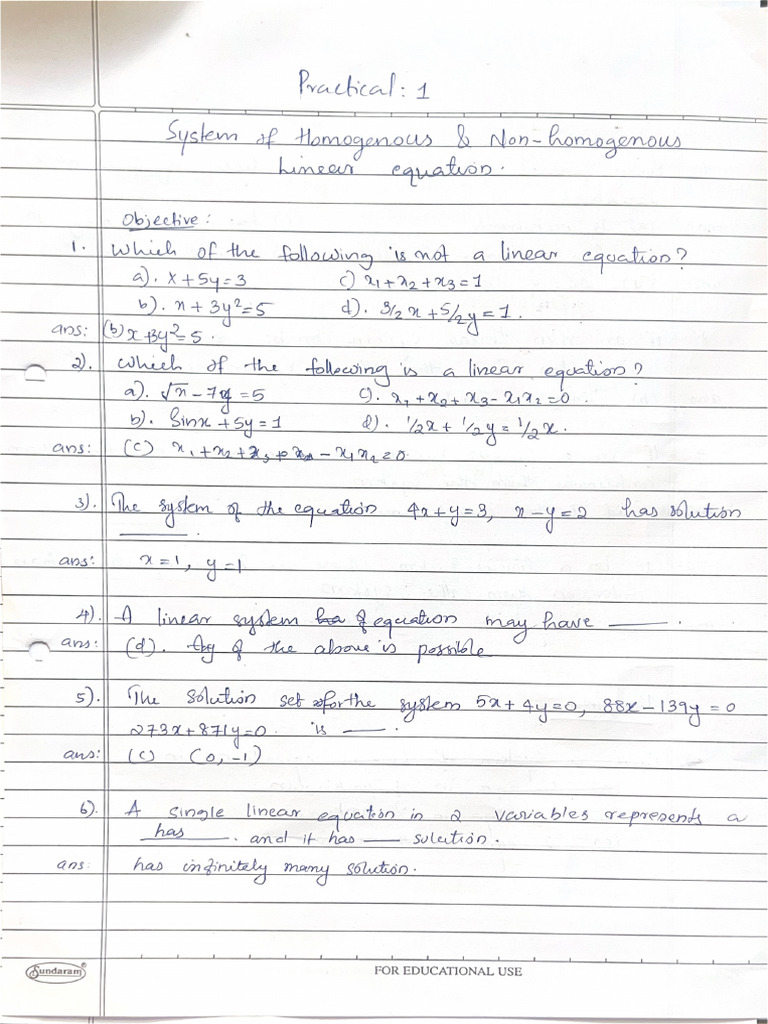 Practical: 1
System of Homogenous & Non-homogenous
Linear equation.
Objective:
1. Which of the following is not a linear equation?
a). x + 5y = 3 c) x1 + x2 + x3 = 1
b). x + 3y² = 5 d). 3/2 x + 5/2 y = 1.
ans: (b) x + 3y² = 5.
2). Which of the following is a linear equation?
a). √x - 7y = 5 c). x1 + x2 + x3 - x1x2 = 0.
b). Sinx + 5y = 1 d). 1/2x + 1/2y = 1/2x.
ans: (c) x1 + x2 + x3 - x1x2 = 0
3). The system of the equation 4x + y = 3, x - y = 2 has solution
______.
ans: x = 1, y = 1
4). A linear system of equation may have ____.
ans: (d). Any of the above is possible
5). The solution set for the system 5x + 4y = 0, 88x - 139y = 0
273x + 871y = 0. is ___.
ans: (c) (0, -1)
6). A single linear equation in 2 variables represents a
has ____. and it has ___ solution.
ans: has infinitely many solution.
Sundaram®
FOR EDUCATIONAL USE